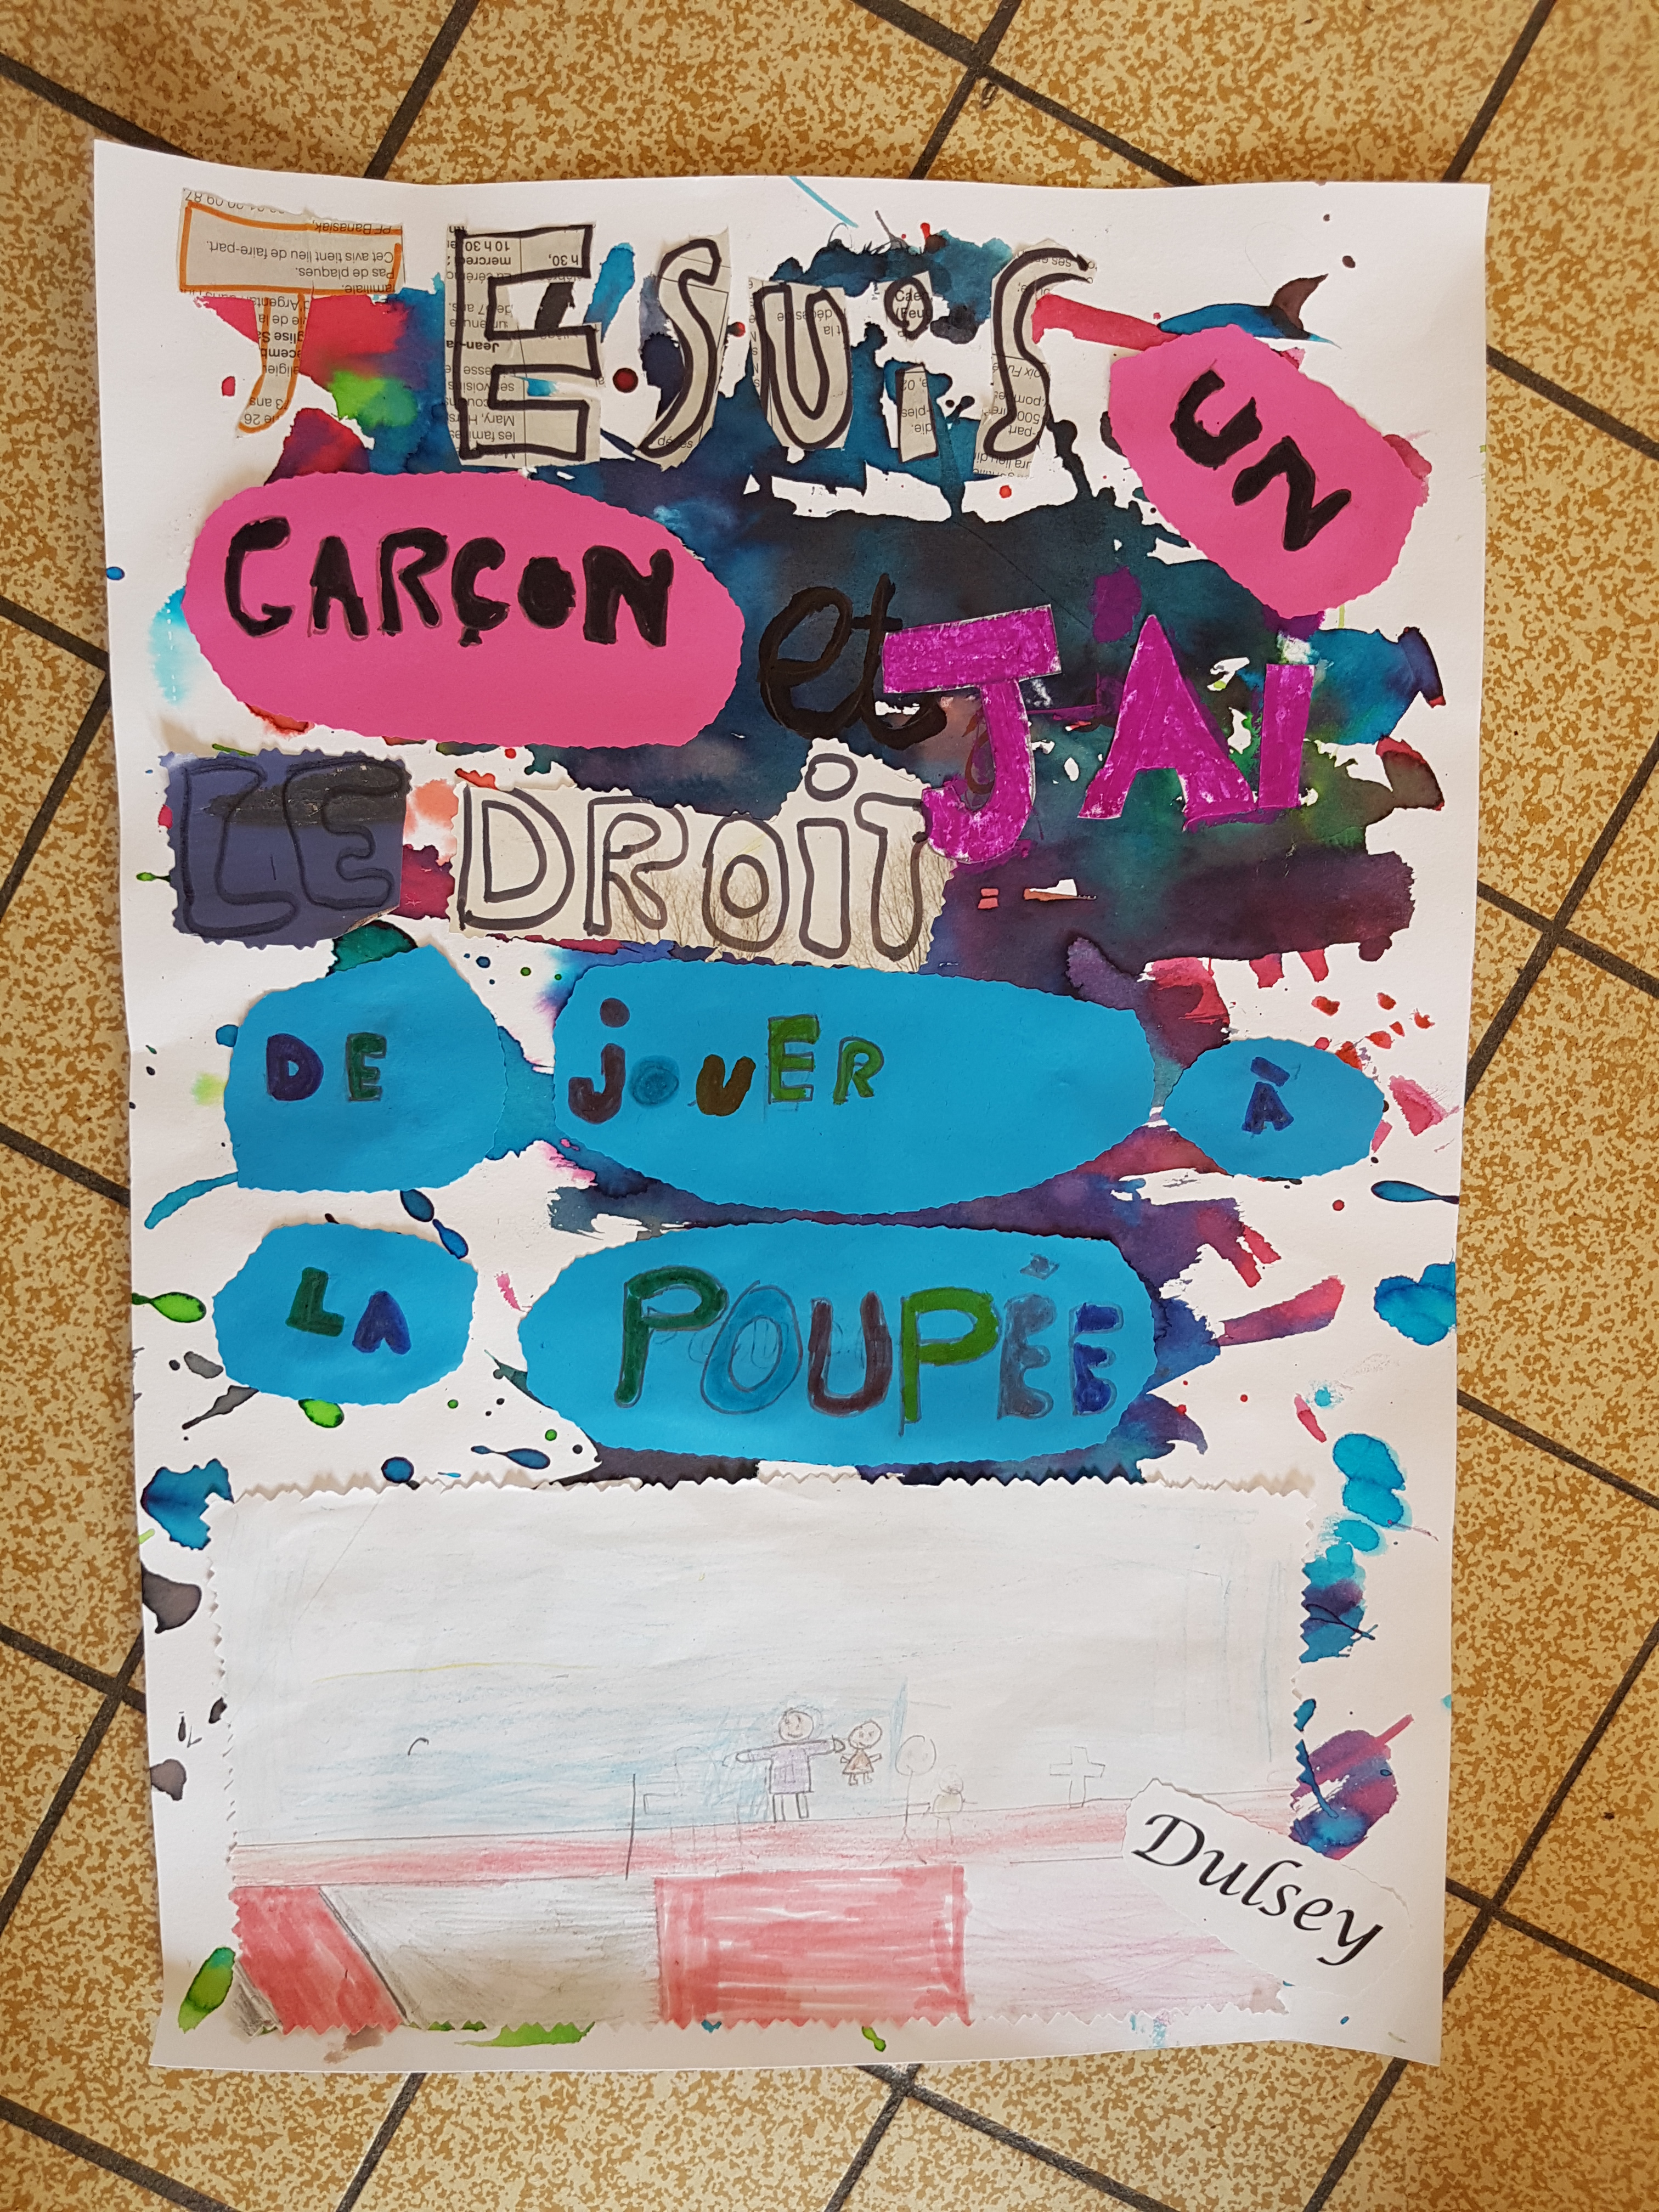 JE SUiS UN
GARÇON et J'Ai
LE DROiT
DE jOUER À
LA POUPÉE
Dulsey